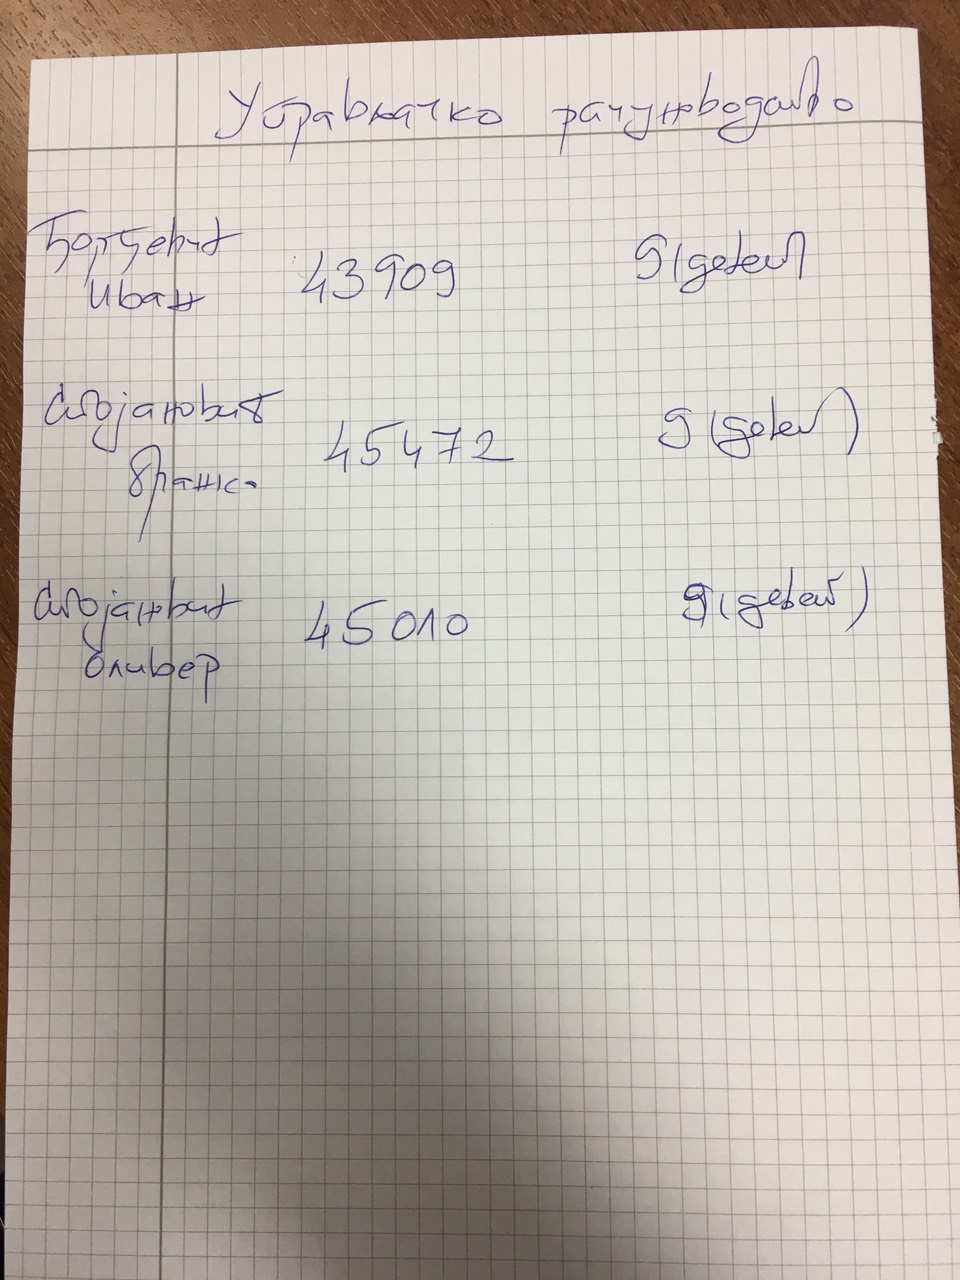 Управљачко рачуноводство
Ђорђевић 43909 9 (девет)
Иван
Стојановић 45472 9 (девет)
Бранко
Стојановић 45010 9 (девет)
Оливер